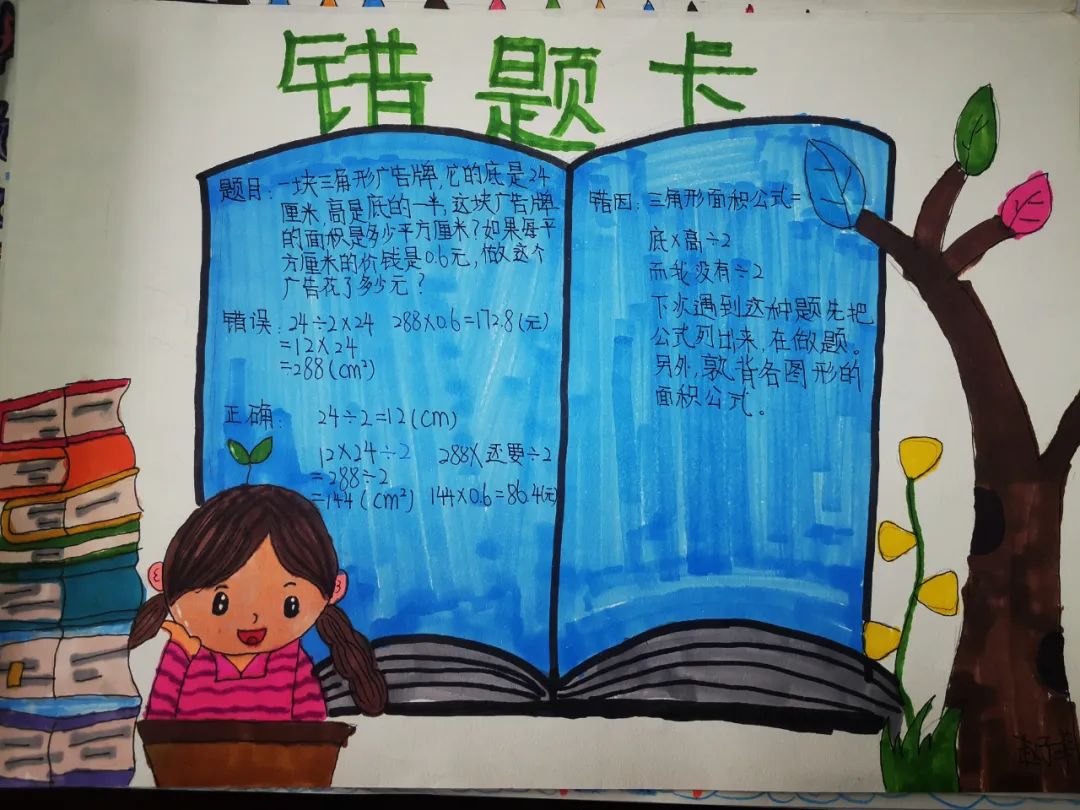 错题卡
题目:一块三角形广告牌,它的底是24
厘米,高是底的一半,这块广告牌
的面积是多少平方厘米?如果每平
方厘米的价钱是0.6元,做这个
广告花了多少元?
错误:24÷2×24 288×0.6=172.8(元)
=12×24
=288(cm²)
正确: 24÷2=12(cm)
12×24÷2 288× 还要÷2
=288÷2
=144(cm²) 144×0.6=86.4(元)
错因:三角形面积公式=
底×高÷2
而我没有÷2
下次遇到这种题先把
公式列出来,在做题。
另外,孰背各图形的
面积公式。